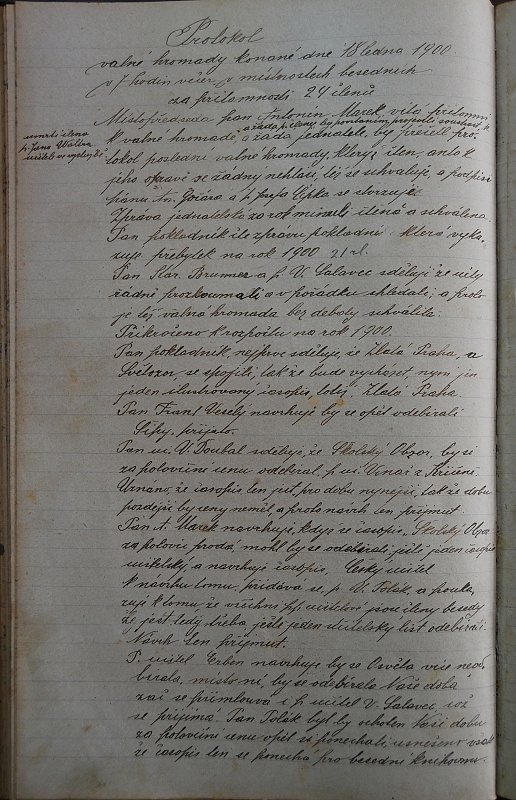 Protokol
valné hromady konané dne 18 ledna 1900.
v 7 hodin večer v místnostech besedních
za přítomnosti 24 členů
Místopředseda pan Antonín Marek vítá přítomné
k valné hromadě, a žádá p. členy, by povstáním, projevili soustrast, k
úmrtí člena
p. Jana
učitele
a žádá jednatele, by přečetl pro-
tokol poslední valné hromady, kterýž čten, a nto k
jeho opravě se žádný nehlásí, tej se schvaluje, a podpisy
pánů An. Gořara a p. Josefa Cepka se stvrzuje.
Zpráva jednatelská za rok minulé čtená a schválena.
Pan pokladník čte zprávu pokladní která vyka-
zuje přebytek na rok 1900 21 zl.
Pan Kar. Brumer a p. V. Salavec sdělují že účty
řádně prozkoumali a v pořádku shledali, a proto
je též valná hromada bez debaty schválila.
Přikročeno k rozpočtu na rok 1900.
Pan pokladník, nejprve sděluje, že Zlatá Praha, a
Světozor, se spojili, tak že bude vycházet nyní jen
jeden ilustrovaný časopis totiž, Zlatá Praha.
Pan Frant Veselý navrhuje by se opět odebírali
Šípy, přijato.
Pan uč. V. Toubal sděluje, že Školský Obzor, by si
za poloviční cenu odebíral, p. uč.
Uznáno, že časopis ten jest, pro dobu nynější, tak že dobu
pozdější by ceny neměl, a proto návrh ten, přijmut.
Pan A. Marek navrhuje, když se časopis "Školský Obzor
za polovic prodá, mohl by se odebírati, ještě jeden časopis
učitelský, a navrhuje časopis, Český učitel
K návrhu tomu, přidává se, p. V. Polák, a pouka-
zuje k tomu že všichni pp. učitelové jsou členy besedy
že jest tedy třeba, ještě jeden učitelský list odebírati.
Návrh ten přijmut.
P. učitel Erben navrhuje by se Osvěta více neod-
bírala, místo ní, by se odebírala Naše doba
zač se přimlouvá i p. učitel V. Salavec, což
se přijímá. Pan Polák byl by ochoten Naši dobu
za poloviční cenu opět si ponechati, usnešeno však
že časopis ten se ponechá pro besední knihovnu.